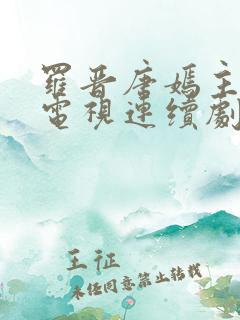 羅晋唐嫣主
電視連續劇
王征
未经同意禁止转载